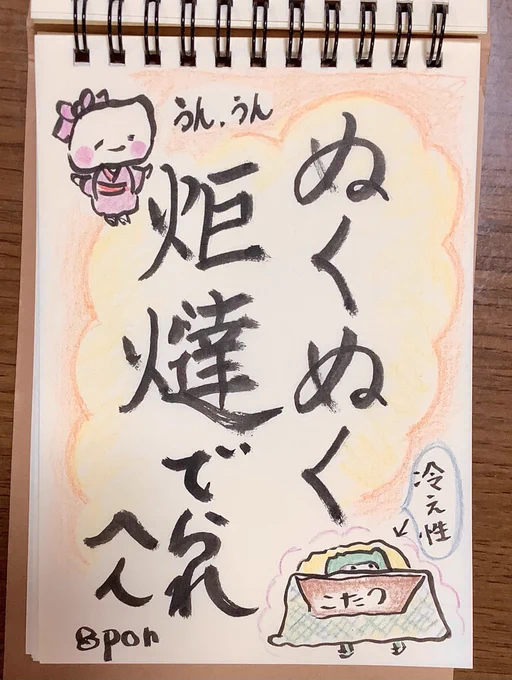 うん、うん
ぬくぬく
炬燵でられ
へん
冷え性
こたつ
8pon